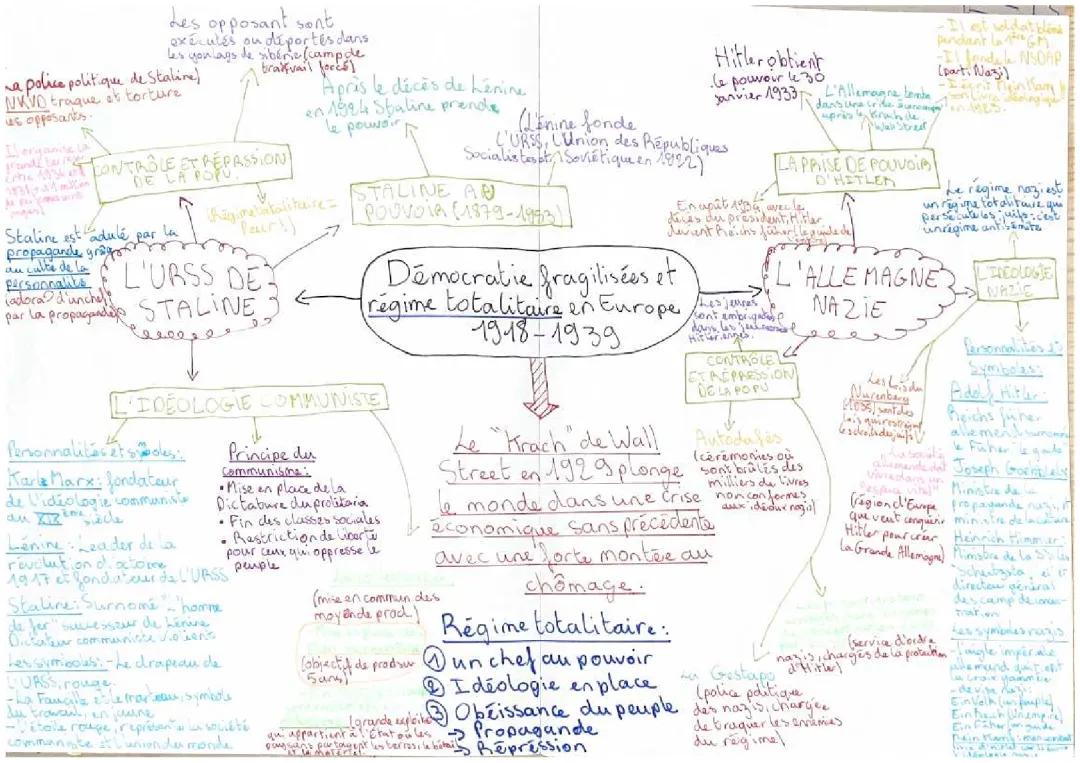 Les opposant sont
exécutés ou déportés dans
les goulags de sibérie (camp de
travail forcé)
La police politique de Staline
NKVD traque et torture
les opposants.
Il organise la
CONTRÔLE ET RÉPRESSION
DE LA POPU.
(Régime totalitaire =
Peur!)
Staline est adulé par la
propagande grâce
au culte de la
personnalité
(adora° d'un chef
par la propagande)
L'URSS DE
STALINE
Après le décès de Lénine
en 1924 Staline prende
le pouvoir
(Lénine fonde
L'URSS, L'Union des Républiques
Socialistes et Soviétique en 1922)
STALINE AU
POUVOIR (1879-1953)
Démocratie fragilisées et
régime totalitaire en Europe
1918-1939
Hitler obtient
le pouvoir le 30
janvier 1933
L'Allemagne tombe
dans une crise économique
après le Krach de
Wall Street
- Il est soldat blessé
pendant la 1ère GM
- Il fonde le NSDAP
(parti Nazi)
- Il écrit Mein Kampf
en 1923.
LA PRISE DE POUVOIR
D'HITLER
En août 1934, avec le
décès du président, Hitler
devient Reichs führer (le guide de
l'empire)
Le régime nazi est
un régime totalitaire qui
persécute les juifs : c'est
un régime antisémite
L'ALLEMAGNE
NAZIE
L'IDÉOLOGIE
NAZIE
Les jeunes
sont embrigadés
dans les jeunesses
Hitlériennes.
CONTRÔLE
ET RÉPRESSION
DE LA POPU
Autodafés
(cérémonies où
sont brûlés des
milliers de livres
non conformes
aux idéaux nazis)
Les Lois du
Nuremberg
sont des
lois qui restreint
les droits des juifs
La société
allemande doit
vivre dans un
"espace vital"
(région d'Europe
que veut conquérir
Hitler pour créer
La Grande Allemagne)
Personnalités et
Symboles:
Adolf Hitler:
Reichs führer
allemend surnommé
le Führer "le guide"
Joseph Goebbels
Ministre de la
propagande nazis, et
ministre de la culture
Heinrich Himmler:
directeur général
des camp de
Les symboles nazis
- l'aigle impériale
allemand
la croix gammée
- devise nazi:
Ein Volk (un peuple)
Ein Reich (Un empire)
Ein Führer (un guide)
L'IDÉOLOGIE COMMUNISTE
Personnalités et symboles:
Karl Marx: fondateur
de l'idéologie communiste
du XIXème siècle
Lénine: Leader de la
révolution d'octobre
1917 et fondateur de l'URSS
Staline: Surnomé "L'homme
de fer" successeur de Lénine
Dictateur communiste violent
Les symboles: - Le drapeau de
L'URSS, rouge.
- La Faucille et le marteau, symbole
du travail, en jaune
- L'étoile rouge, représente la société
communiste et l'union du monde
Principe du
communisme:
• Mise en place de la
Dictature du prolétaria
• Fin des classes sociales
• Restriction de liberté
pour ceux qui oppresse le
peuple
(mise en commun des
moyen de prod.)
(objectif de prod sur
5 ans)
(grande exploité
qui appartient à l'État où les
paysans partagent les terres, le bétail
et le matériel
Le "Krach" de Wall
Street en 1929 plonge
le monde dans une crise
économique sans précédente
avec une forte montée au
chômage.
Régime totalitaire:
① un chef au pouvoir
② Idéologie en place
③ Obéissance du peuple
→ Propagande
→ Répression
(service d'ordre
nazis, chargés de la protection
d'Hitler)
La Gestapo
(police politique
des nazis, chargée
de traquer les ennemies
du régime)